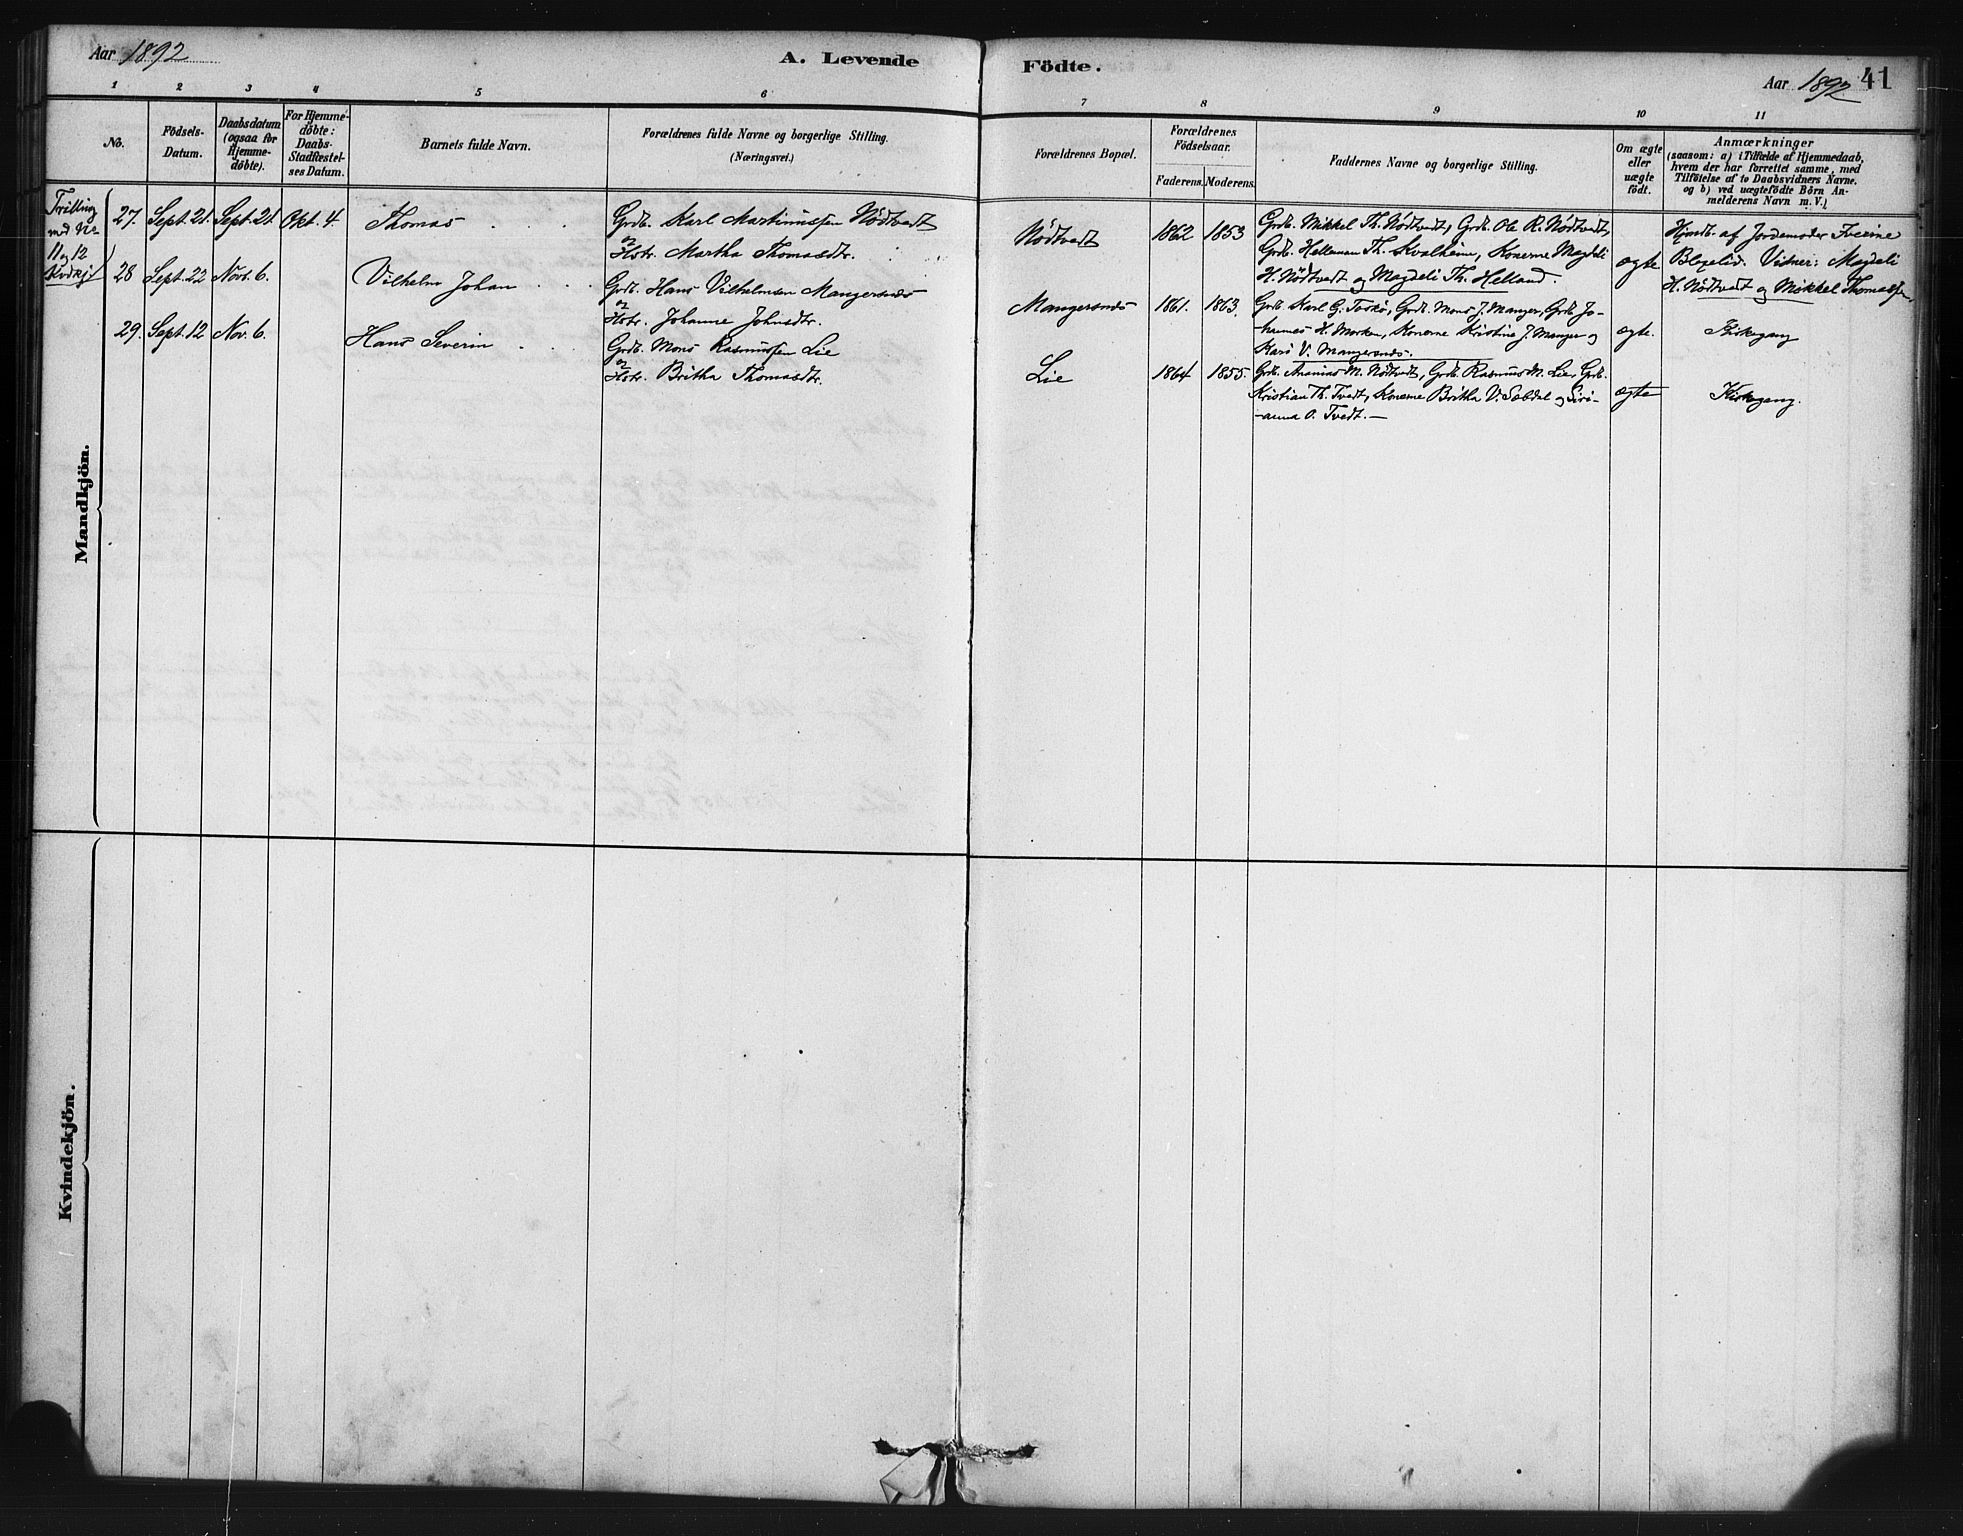 Aar 1892
A. Levende Födte.
Aar 1892 41
1 2 3 4 5 6 7 8 9 10 11
No.
Födsels-Datum.
Daabsdatum (ogsaa for Hjemme-döbte).
For Hjemme-döbte: Daabs-Stadfæstel-ses Datum.
Barnets fulde Navn.
Forældrenes fulde Navne og borgerlige Stilling.
(Næringsvei.)
Forældrenes Bopæl.
Forældrenes Födselsaar.
Faderens. Moderens.
Faddernes Navne og borgerlige Stilling.
Om ægte eller uægte födt.
Anmærkninger
(saasom: a) i Tilfælde af Hjemmedaab,
hvem der har forrettet samme, med
Tilföielse af to Daabsvidners Navne,
og b) ved uægtefödte Börn An-
melderens Navn m. V.)
Mandkjön.
Trilling
med No
11 og 12
Kvdkj.
27. Sept. 21. Sept. 21. Okt. 4. Thomas
Grdb. Karl Martinussen Nödtvedt
og
Hstr. Martha Thomasdtr.
Nödtvedt 1862 1853
Grdb. Mikkel Th. Nödtvedt, Grdb. Ole R. Nödtvedt,
Grdb. Helleman Th. Kvalheim, Konerne Magdeli
H. Nödtvedt og Magdeli Th. Helland.
ægte
Hjmdb. af Jordemoder Iverine
Vidner: Magdeli
H. Nödtvedt og Mikkel Thomassen
28 Sept. 22 Nov. 6. Vilhelm Johan
Grdb. Hans Vilhelmsen Mangersnæs
og
Hstr. Johanne Johnsdtr.
Mangersnæs 1861. 1863.
Grdb. Karl G. Toskö, Grdb. Mons J. Manger, Grdb. Jo-
hannes H. Morken, Konerne Kristine J. Manger og
Kari V. Mangersnæs.
ægte. Kirkegang
29. Sept. 12 Nov. 6. Hans Severin
Grdb. Mons Rasmussen Lie
og
Hstr. Britha Thomasdtr.
Lie 1864 1855.
Grdb. Ananias M. Nödtvedt, Grdb. Rasmus M. Lie, Grdb.
Kristian Th. Tvedt, Konerne Britha V. Sæbdal og Siri-
anna O. Tvedt. —
ægte Kirkegang.
Kvindekjön.